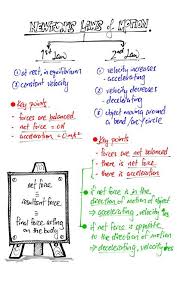 NEWTON'S LAWS of MOTION
1st Law
① at rest, in equilibrium
② constant velocity
* Key points
- forces are balanced
- net force = 0N
- acceleration = 0 m/s²
net force
=
resultant force
=
final force acting
on the body
2nd Law
① velocity increases
- accelerating
② velocity decreases
- decelerating
③ object moving around
a bend/arc/circle
* Key points
- forces are not balanced
- there is net force
- there is acceleration
if net force is in the
direction of motion of object
⇒ accelerating, velocity ↑es
if net force is opposite
to the direction of motion
⇒ decelerating, velocity ↓es